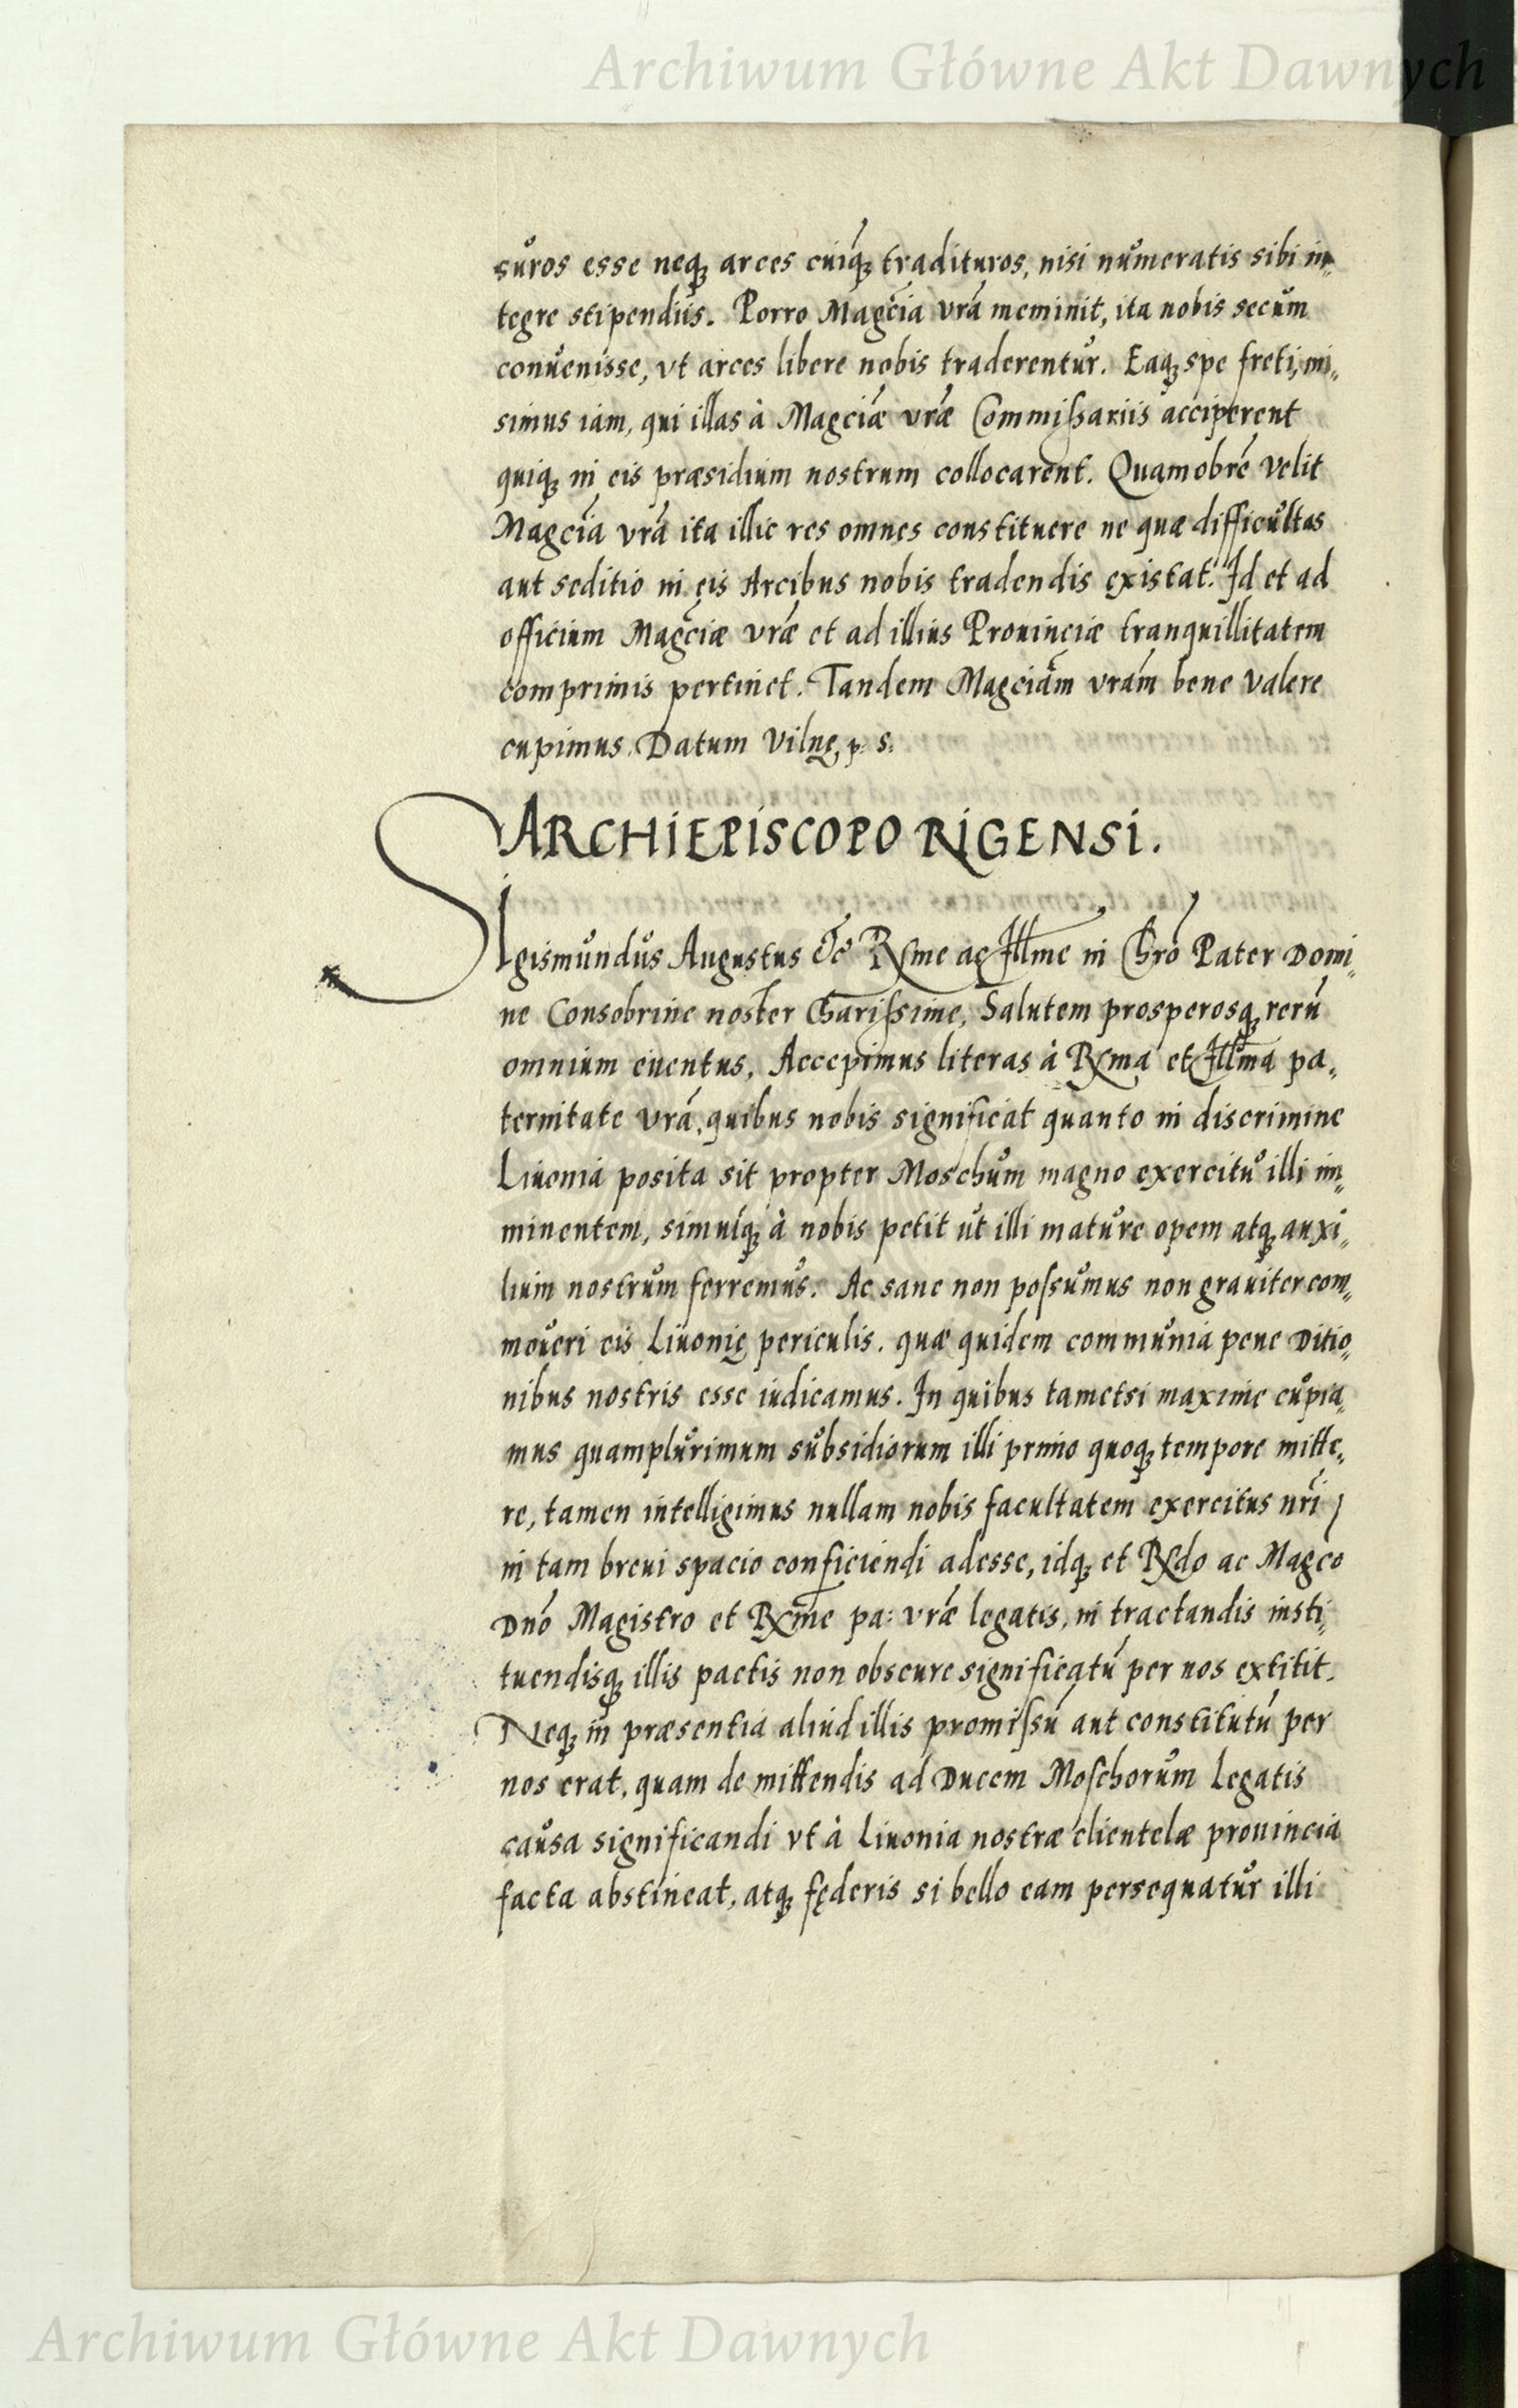 Archiwum Główne Akt Dawnych
suros esse neq; arces cuiq; tradituros, nisi numeratis sibi in„
tegre stipendiis. Porro Magcia vrã meminit, ita nobis secum
conuenisse, vt arces libere nobis traderentur. Eaq; spe freti, mi„
simus iam, qui illas à Magciæ vræ Commissariis acciperent
quiq; in eis præsidium nostrum collocarent. Quamobrẽ velit
Magcia vrã ita illic res omnes constituere ne quæ difficultas
aut seditio in eis Arcibus nobis tradendis existat. Id et ad
officium Magciæ vræ et ad illius Prouinciæ tranquillitatem
comprimis pertinet. Tandem Magciam vram bene valere
cupimus. Datum Vilnę, p. s.
ARCHIEPISCOPO RIGENSI.
SIgismundus Augustus &c Rxme ac Illme in Chro Pater Domi„
ne Consobrine noster Charissime, Salutem prosperosq; rerũ
omnium euentus. Accepimus literas à Rxma et Illma pa„
ternitate vrã, quibus nobis significat quanto in discrimine
Liuonia posita sit propter Moschum magno exercitu illi im„
minentem, simulq; à nobis petit ut illi mature opem atq; auxi„
lium nostrum ferremus. Ac sane non possumus non grauiter com„
moueri eis Liuonię periculis. quæ quidem communia pene Ditio„
nibus nostris esse iudicamus. In quibus tametsi maxime cupia„
mus quamplurimum subsidiorum illi primo quoq; tempore mitte„
re, tamen intelligimus nullam nobis facultatem exercitus nri
in tam breui spacio conficiendi adesse, idq; et Rxdo ac Magco
Dno Magistro et Rxme pa: vræ legatis, in tractandis insti„
tuendisq; illis pactis non obscure significatũ per nos extitit.
Neq; in præsentia aliud illis promissũ aut constitutũ per
nos erat, quam de mittendis ad Ducem Moschorum Legatis
causa significandi vt à Liuonia nostræ clientelæ prouincia
facta abstineat, atq; fęderis si bello eam persequatur illi
Archiwum Główne Akt Dawnych